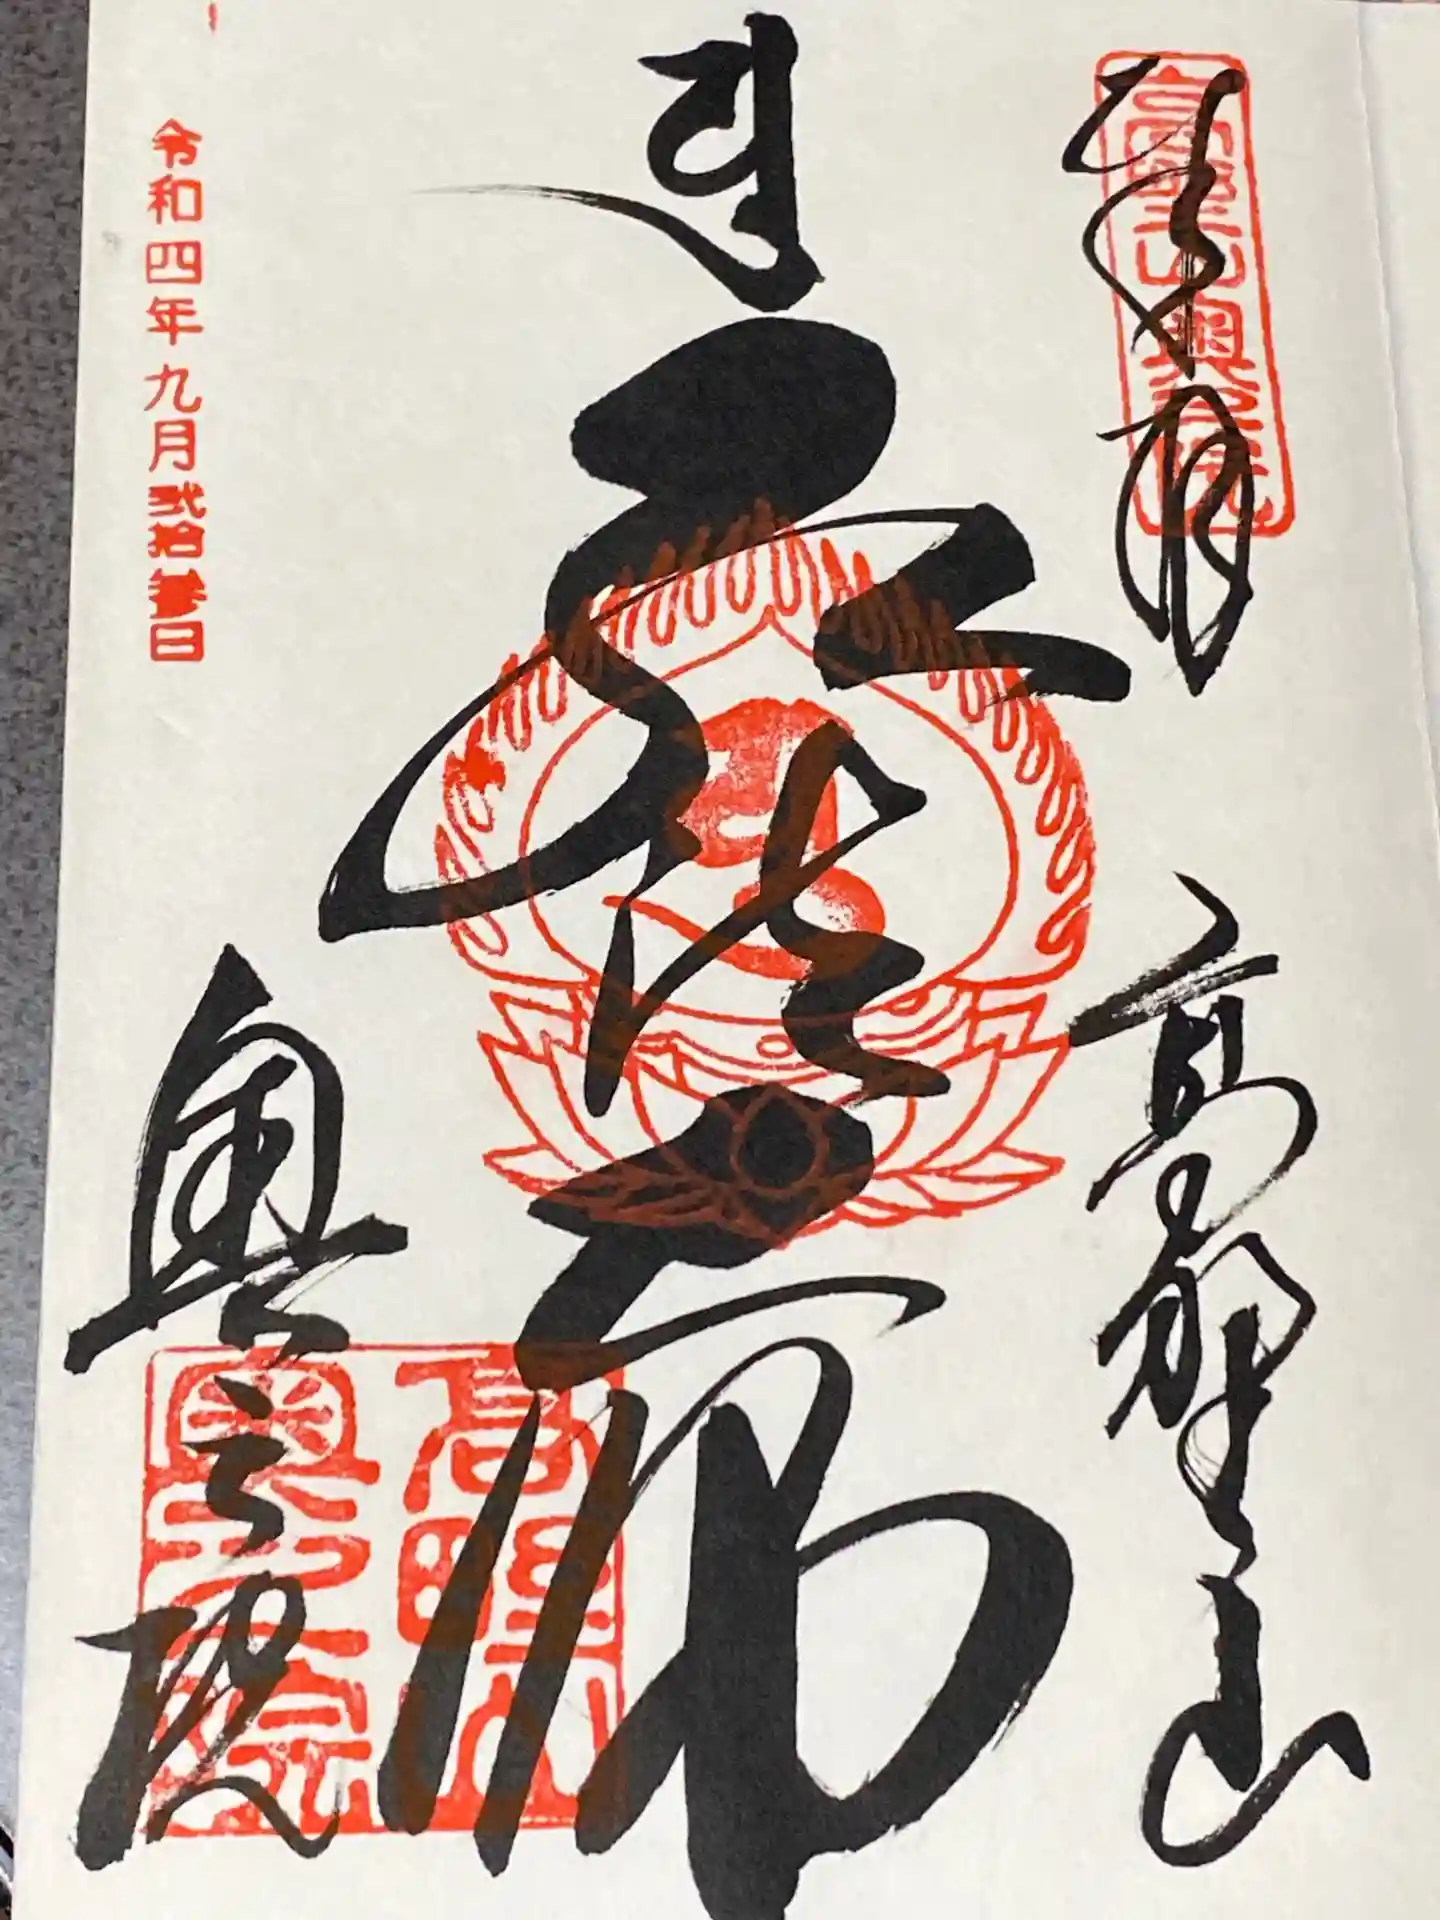 奉拝
高野山
弘法大師
奥之院
高野山
奥之院
令和四年九月弐拾参日